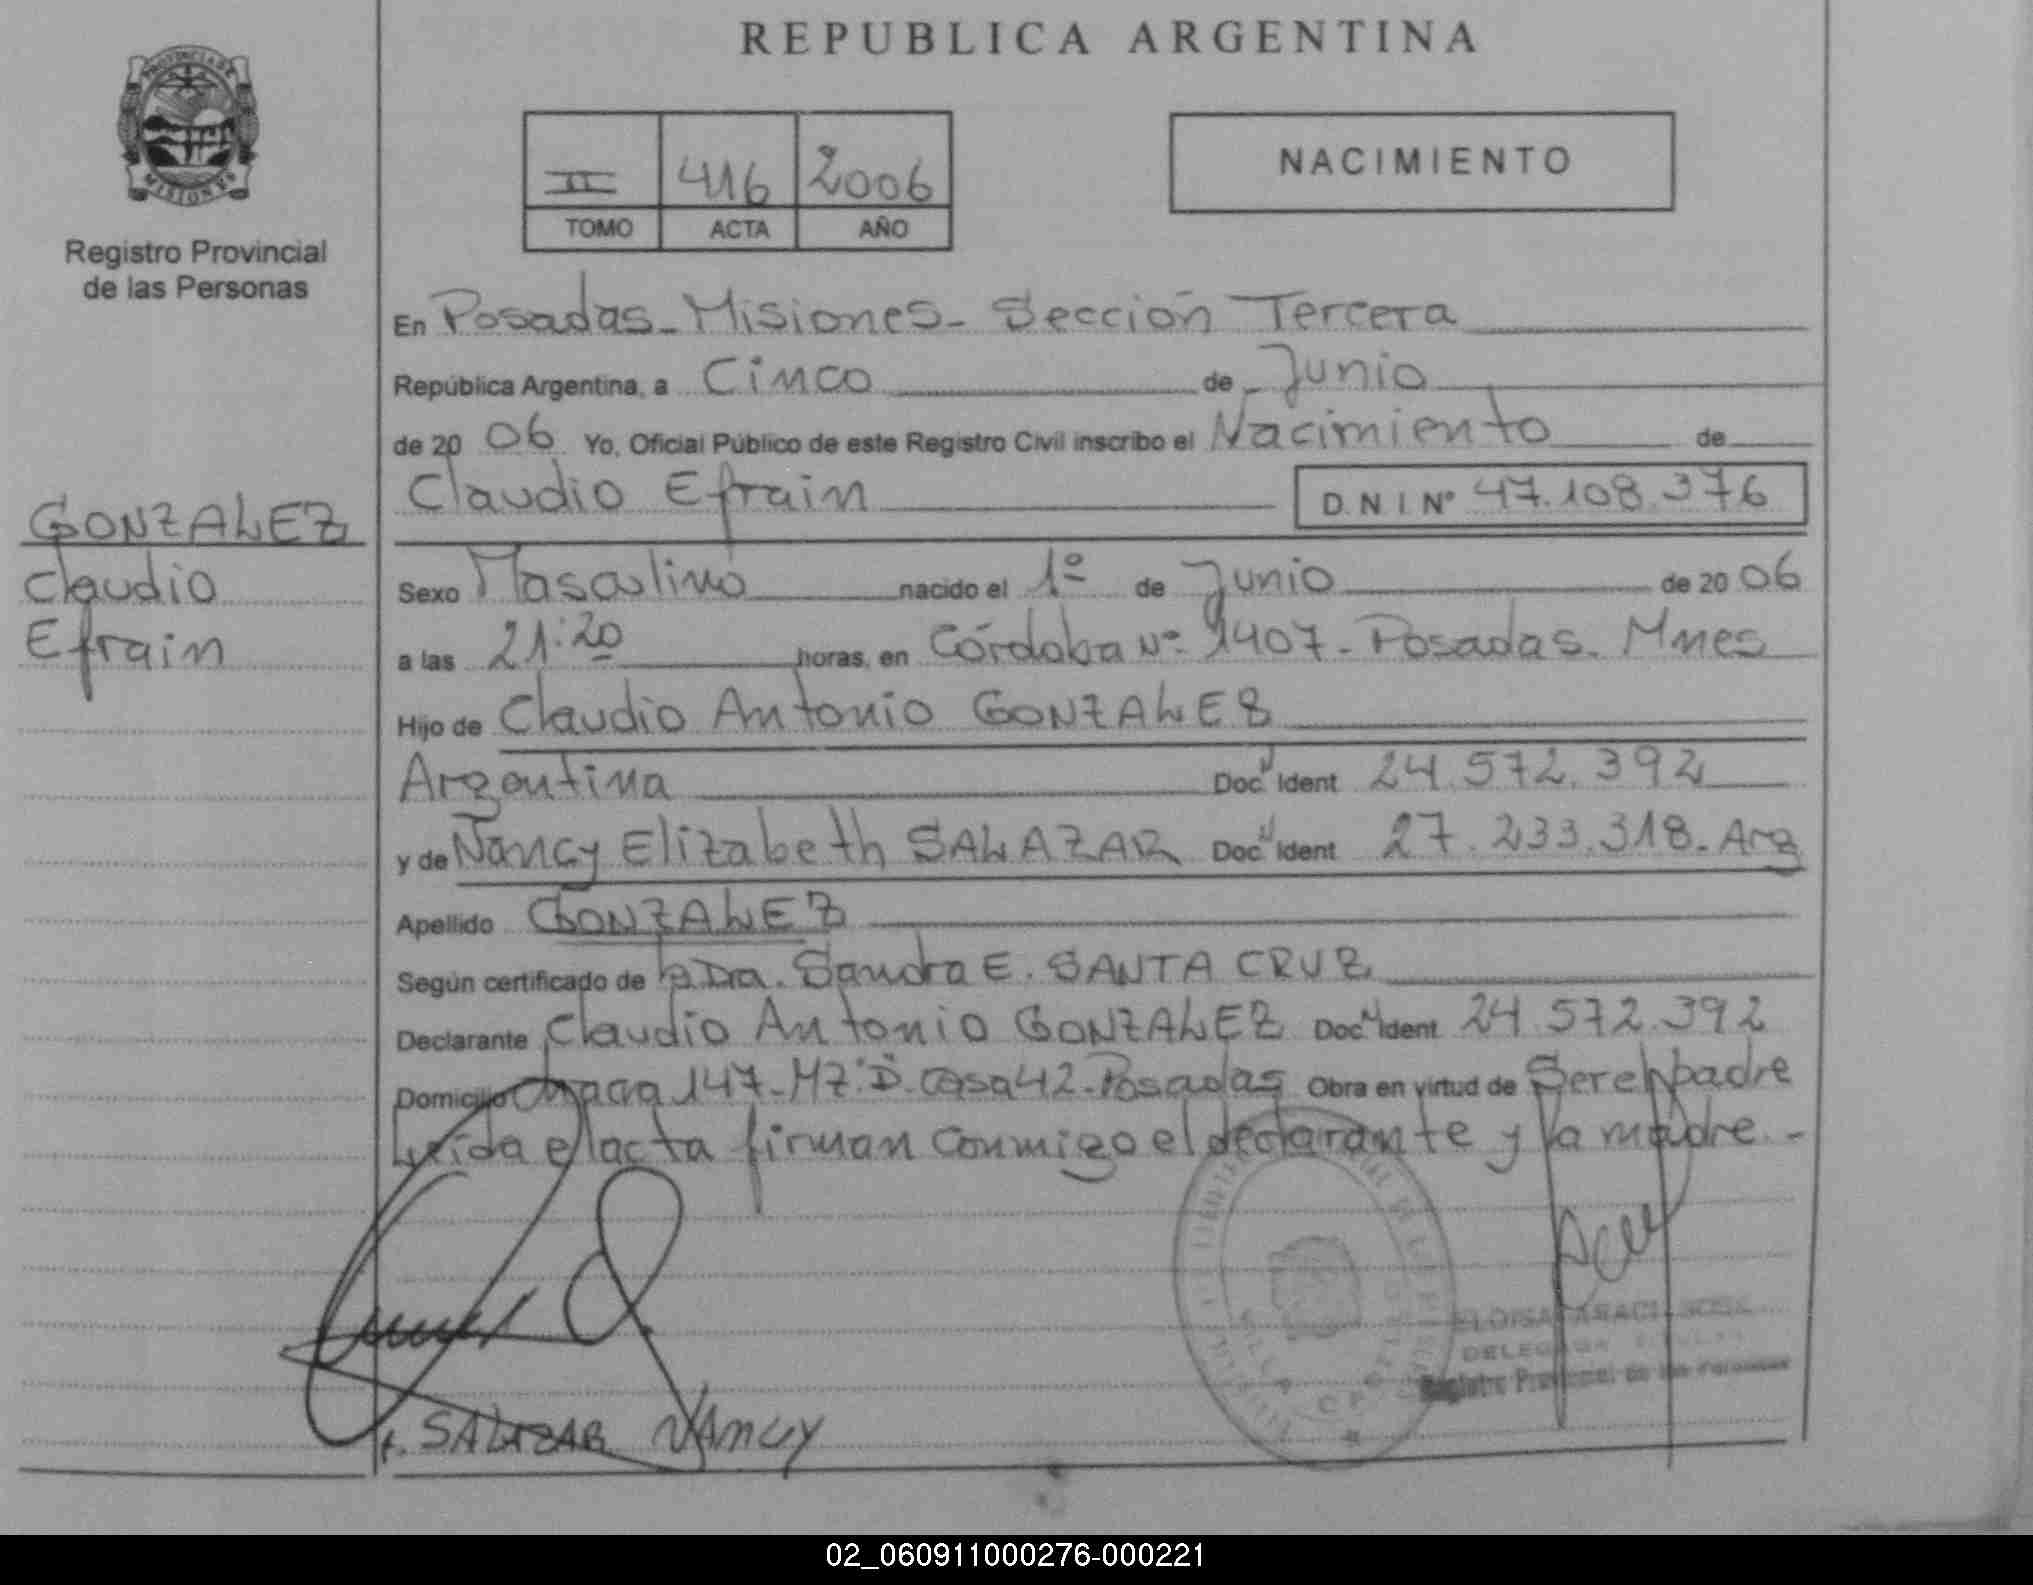 REPUBLICA ARGENTINA
PROVINCIA DE
MISIONES
Registro Provincial
de las Personas
II 416 2006
TOMO ACTA AÑO
NACIMIENTO
En Posadas - Misiones - Sección Tercera
República Argentina, a Cinco de Junio
de 2006 Yo, Oficial Público de este Registro Civil inscribo el Nacimiento de
Claudio Efrain D.N.I Nº 47.108.376
GONZALEZ
Claudio
Efrain
Sexo Masculino nacido el 1º de Junio de 2006
a las 21:20 horas, en Córdoba Nº 1407 - Posadas - Mnes
Hijo de Claudio Antonio GONZALEZ
Argentina Doc Ident 24.572.392
y de Nancy Elizabeth SALAZAR Doc Ident 27.233.318 - Arg
Apellido GONZALEZ
Según certificado de la Dra. Sandra E. SANTA CRUZ
Declarante Claudio Antonio GONZALEZ Doc Ident 24.572.392
Domicilio Chacra 147 - MZ "D" - Casa 42 - Posadas Obra en virtud de Ser el padre
Leída el acta firman conmigo el declarante y la madre. -
SALAZAR NANCY
DELEGADA
Registro Provincial de las Personas
02_060911000276-000221